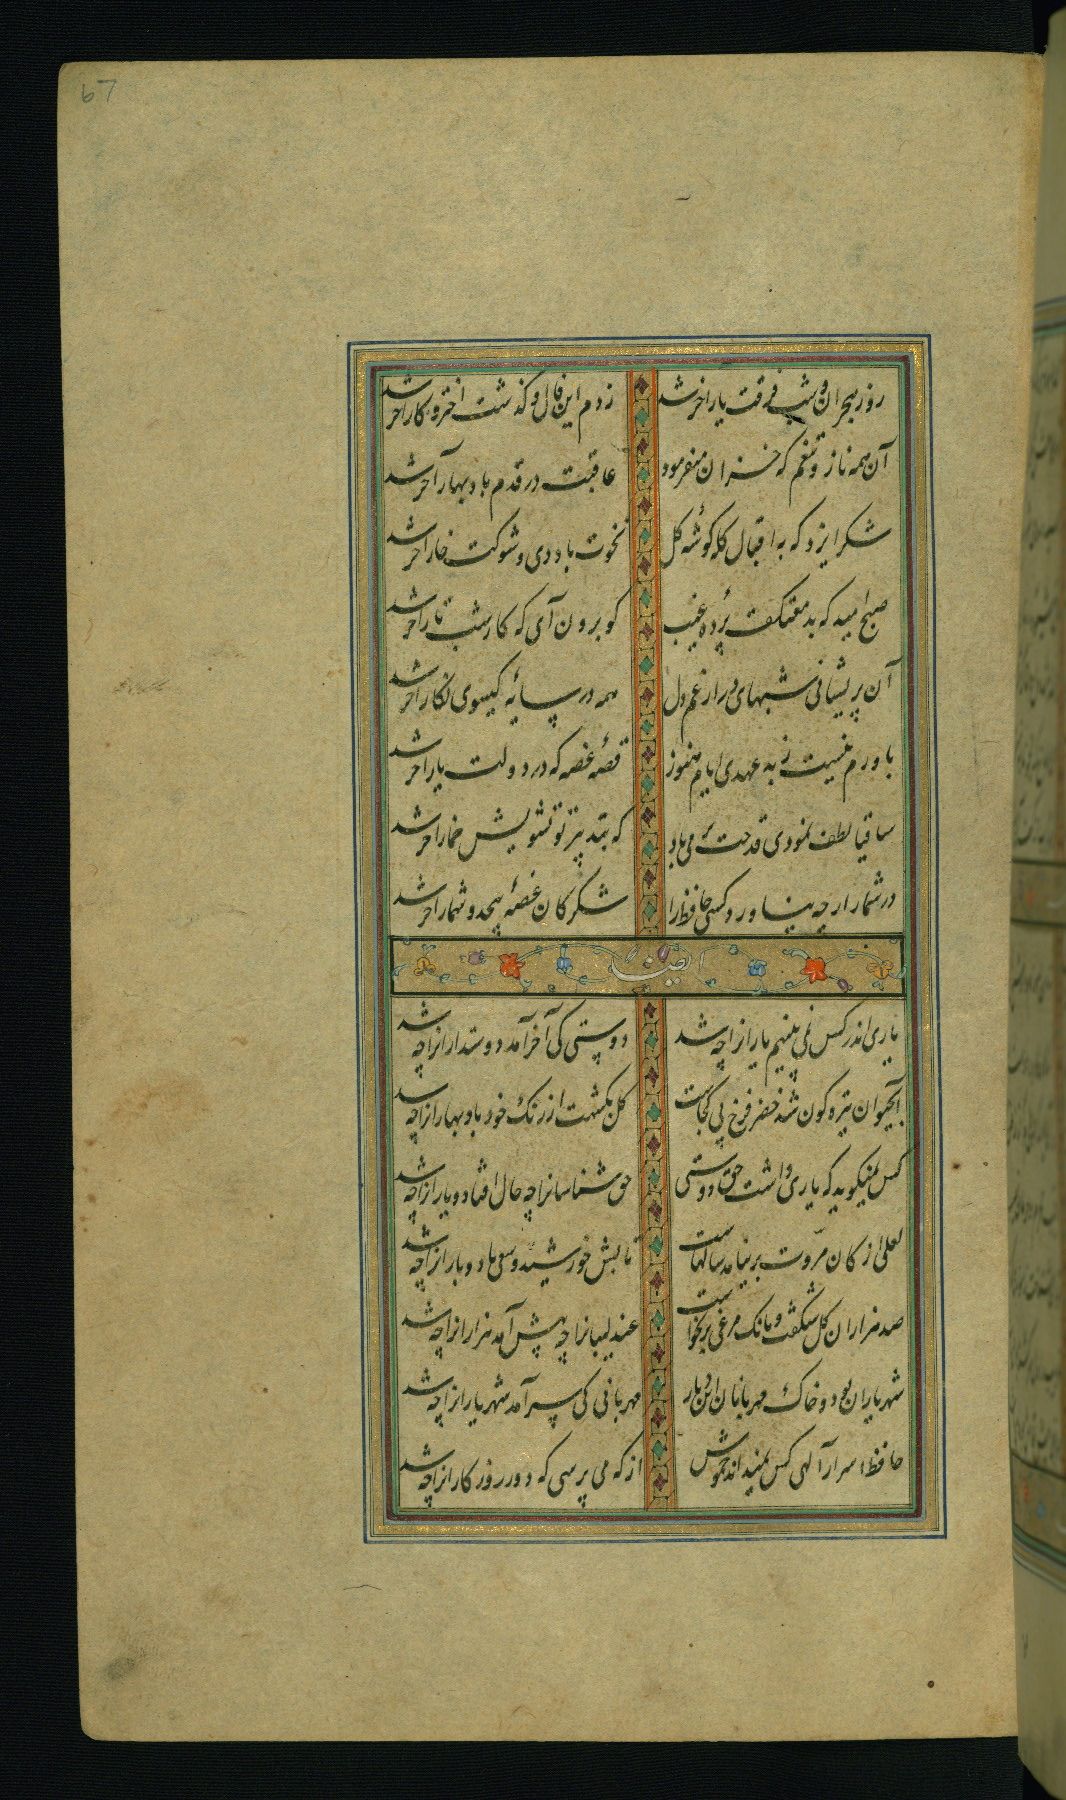 67
روز هجران و شب فرقت یار آخر شد
زدم این فال و گذشت اختر و کار آخر شد
آن همه ناز و تنعم که خزان میفرمود
عاقبت در قدم باد بهار آخر شد
شکر ایزد که به اقبال کله گوشهٔ گل
نخوت باد دی و شوکت خار آخر شد
صبح امید که بد معتکف پردهٔ غیب
گو برون آی که کار شب تار آخر شد
آن پریشانی شبهای دراز غم دل
همه در سایهٔ گیسوی نگار آخر شد
باورم نیست ز بد عهدی ایام هنوز
قصهٔ غصه که در دولت یار آخر شد
ساقیا لطف نمودی قدحت پر می باد
که بتدبیر تو تشویش خمار آخر شد
در شمار ارچه نیاورد کسی حافظ را
شکر کان غصهٔ بیحد و شمار آخر شد
ایضا
یاری اندر کس نمی بینیم یارانرا چه شد
دوستی کی آخر آمد دوستدارانرا چه شد
آب حیوان تیره گون شد خضر فرخ پی کجاست
گل بگشت از رنگ خود باد بهارانرا چه شد
کس نمیگوید که یاری داشت حق دوستی
حق شناسانرا چه حال افتاد و یارانرا چه شد
لعلی از کان مروت بر نیامد سالهاست
تابش خورشید و سعی باد و بارانرا چه شد
صد هزاران گل شکفت و بانگ مرغی بر نخواست
عندلیبانرا چه پیش آمد هزارانرا چه شد
شهر یاران بود و خاک مهربانان این دیار
مهربانی کی سر آمد شهریارانرا چه شد
حافظ اسرار آلهی کس نمیداند خموش
از که می پرسی که دور روزکارانرا چه شد